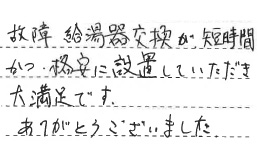 故障 給湯器交換が短時間
かつ 格安に設置していただき
大満足です.
ありがとうございました.